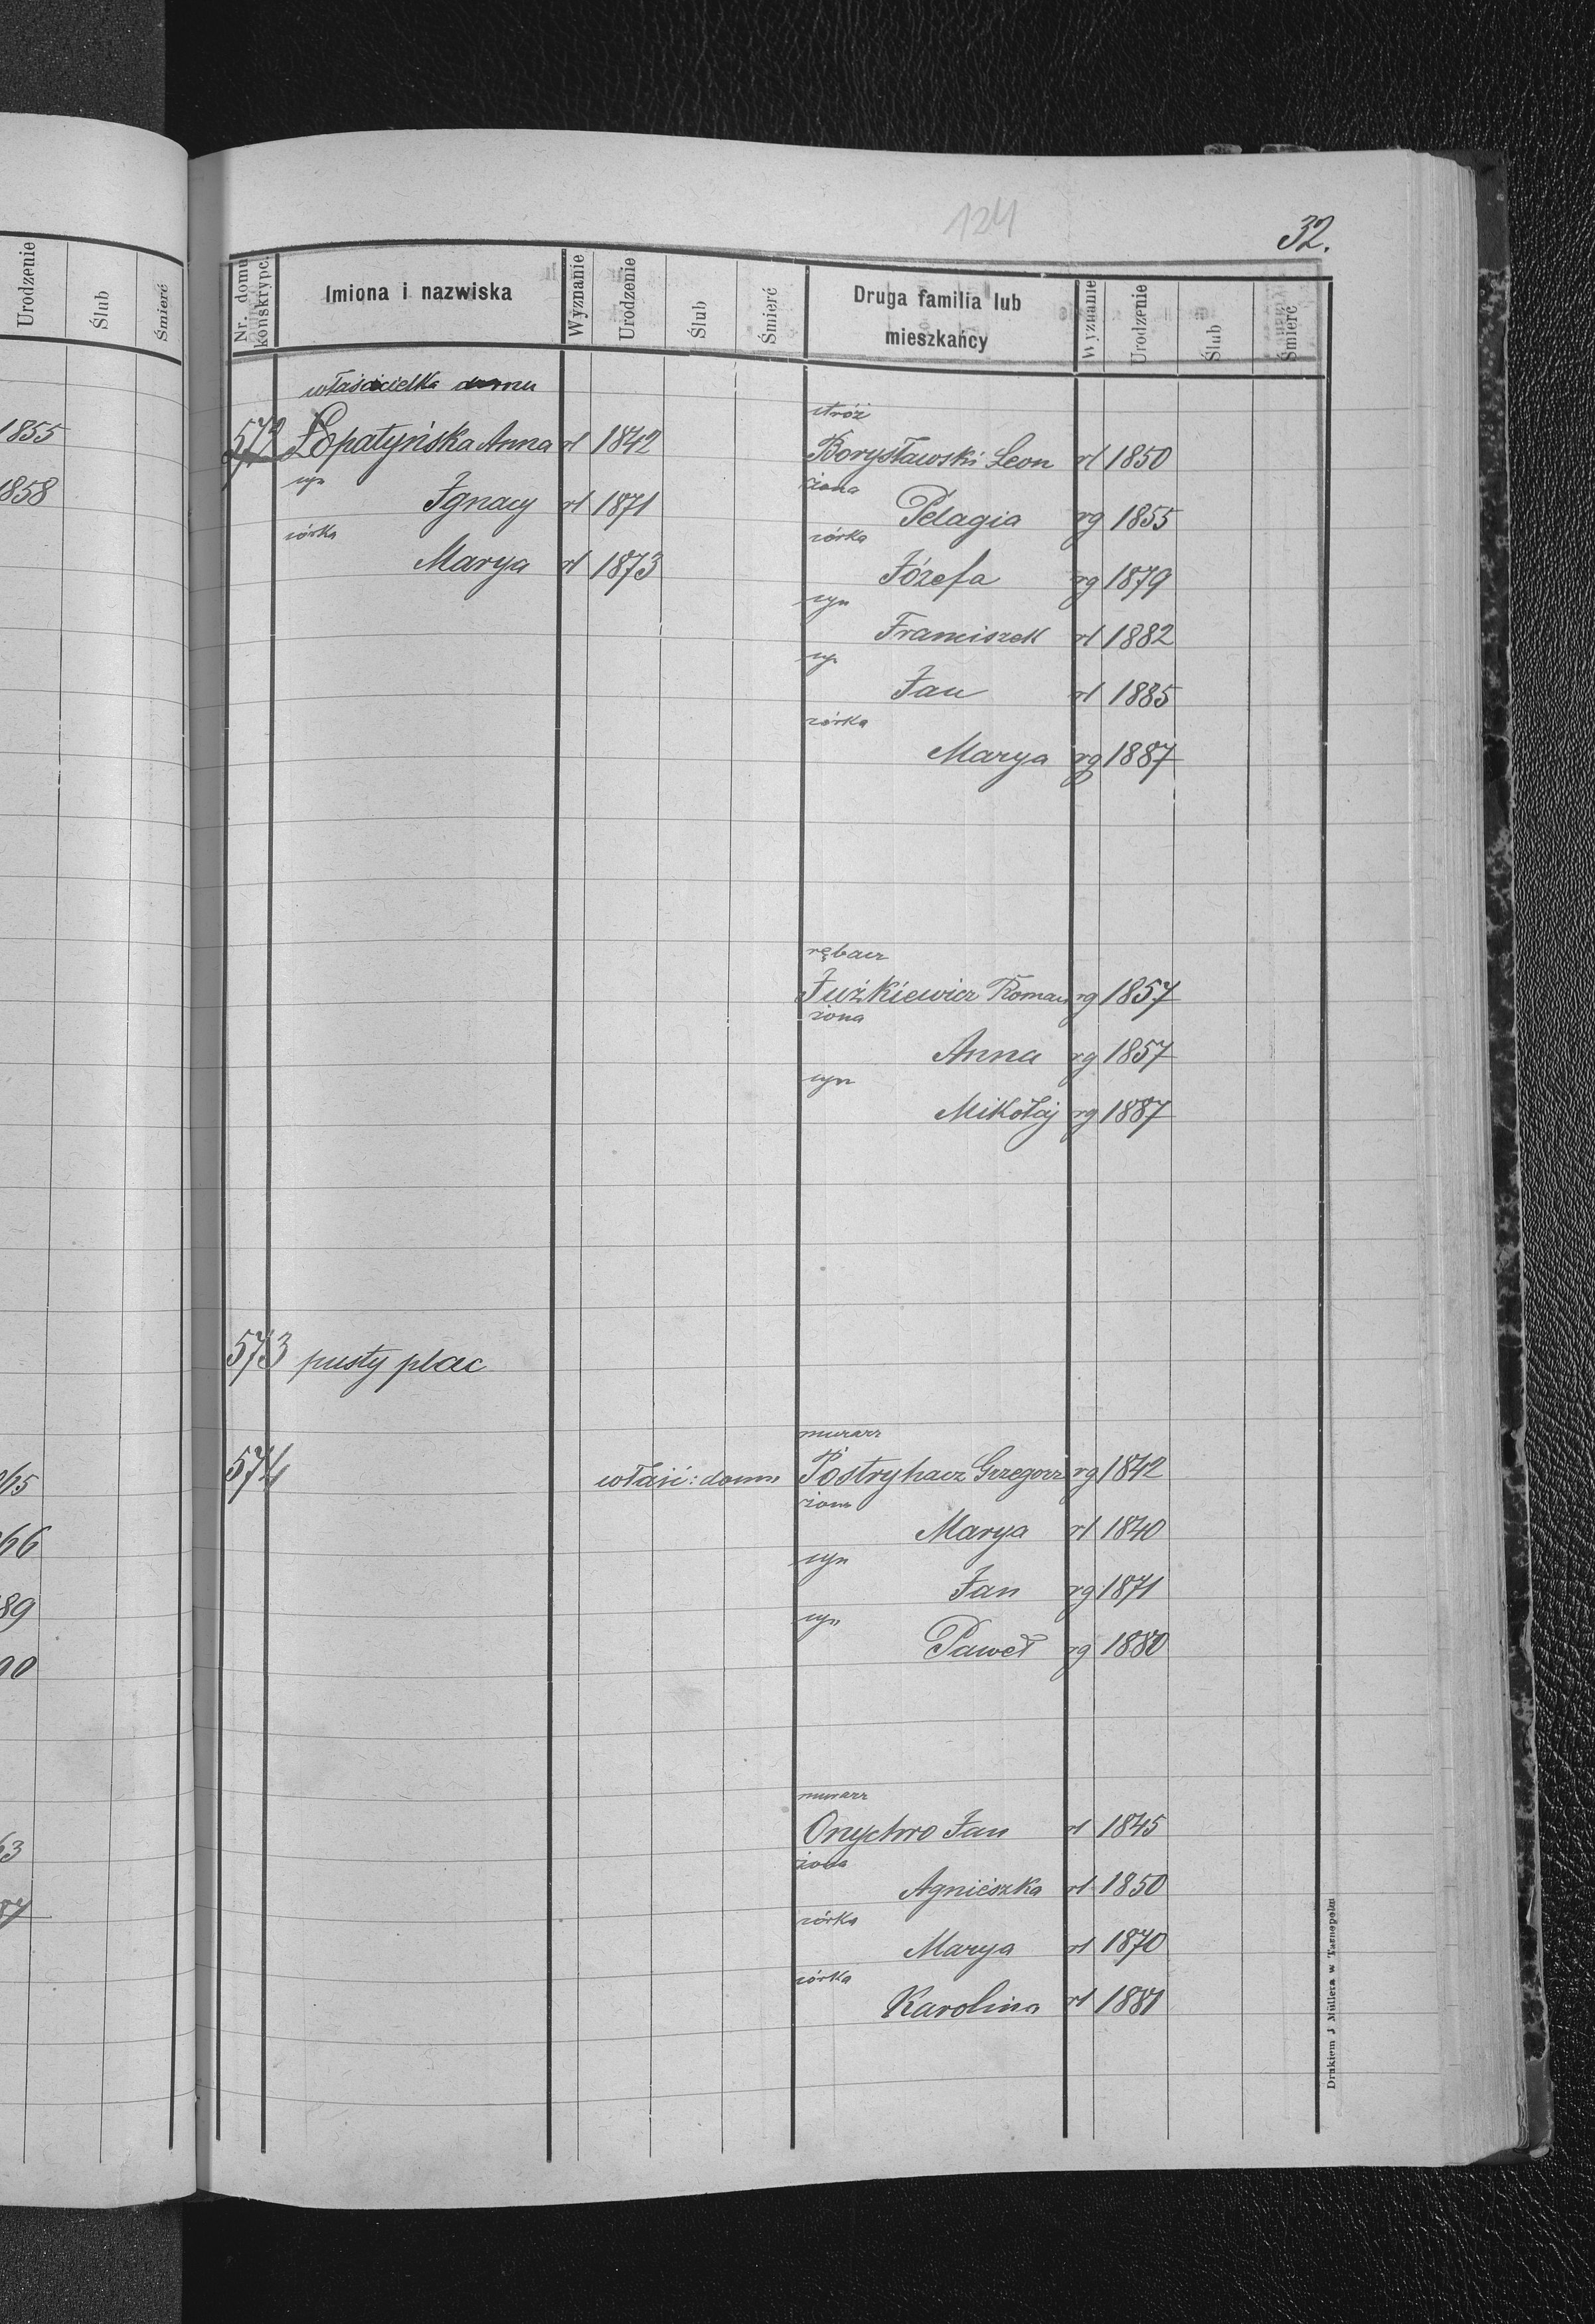 124
32.
Urodzenie Ślub Śmierć
Nr. domu konskrypc. Imiona i nazwiska Wyznanie Urodzenie Ślub Śmierć Druga familia lub mieszkańcy Wyznanie Urodzenie Ślub Śmierć
właścicielka domu
stróż
1855
572 Łopatyńska Anna rł 1842
Borysławski Leon rł 1850
1858
syn
żona
Ignacy rł 1871
Pelagia rg 1855
córka
córka
Marya rł 1873
Józefa rg 1879
syn
Franciszek rł 1882
syn
Jan rł 1885
córka
Marya rg 1887
rębacz
Juźkiewicz Roman rg 1857
żona
Anna rg 1857
syn
Mikołaj rg 1887
573 pusty plac
murarz
65
574 właść: domu Postryhacz Grzegorz rg 1842
żona
66
Marya rł 1840
syn
89
Jan rg 1871
syn
90
Paweł rg 1880
murarz
63
Onychro Jan rł 1845
żona
87
Agnieszka rł 1850
córka
Marya rł 1870
córka
Karolina rł 1881
Drukiem J Müllera w Tarnopolu